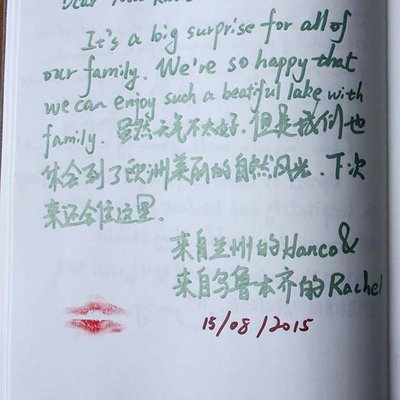 Dear
It's a big surprise for all of
our family. We're so happy that
we can enjoy such a beatiful lake with
family. 虽然天气不太好，但是我们也
体会到了欧洲美丽的自然风光．下次
来还会住这里.
来自兰州的Hanco &
来自乌鲁木齐的Rachel
15/08/2015